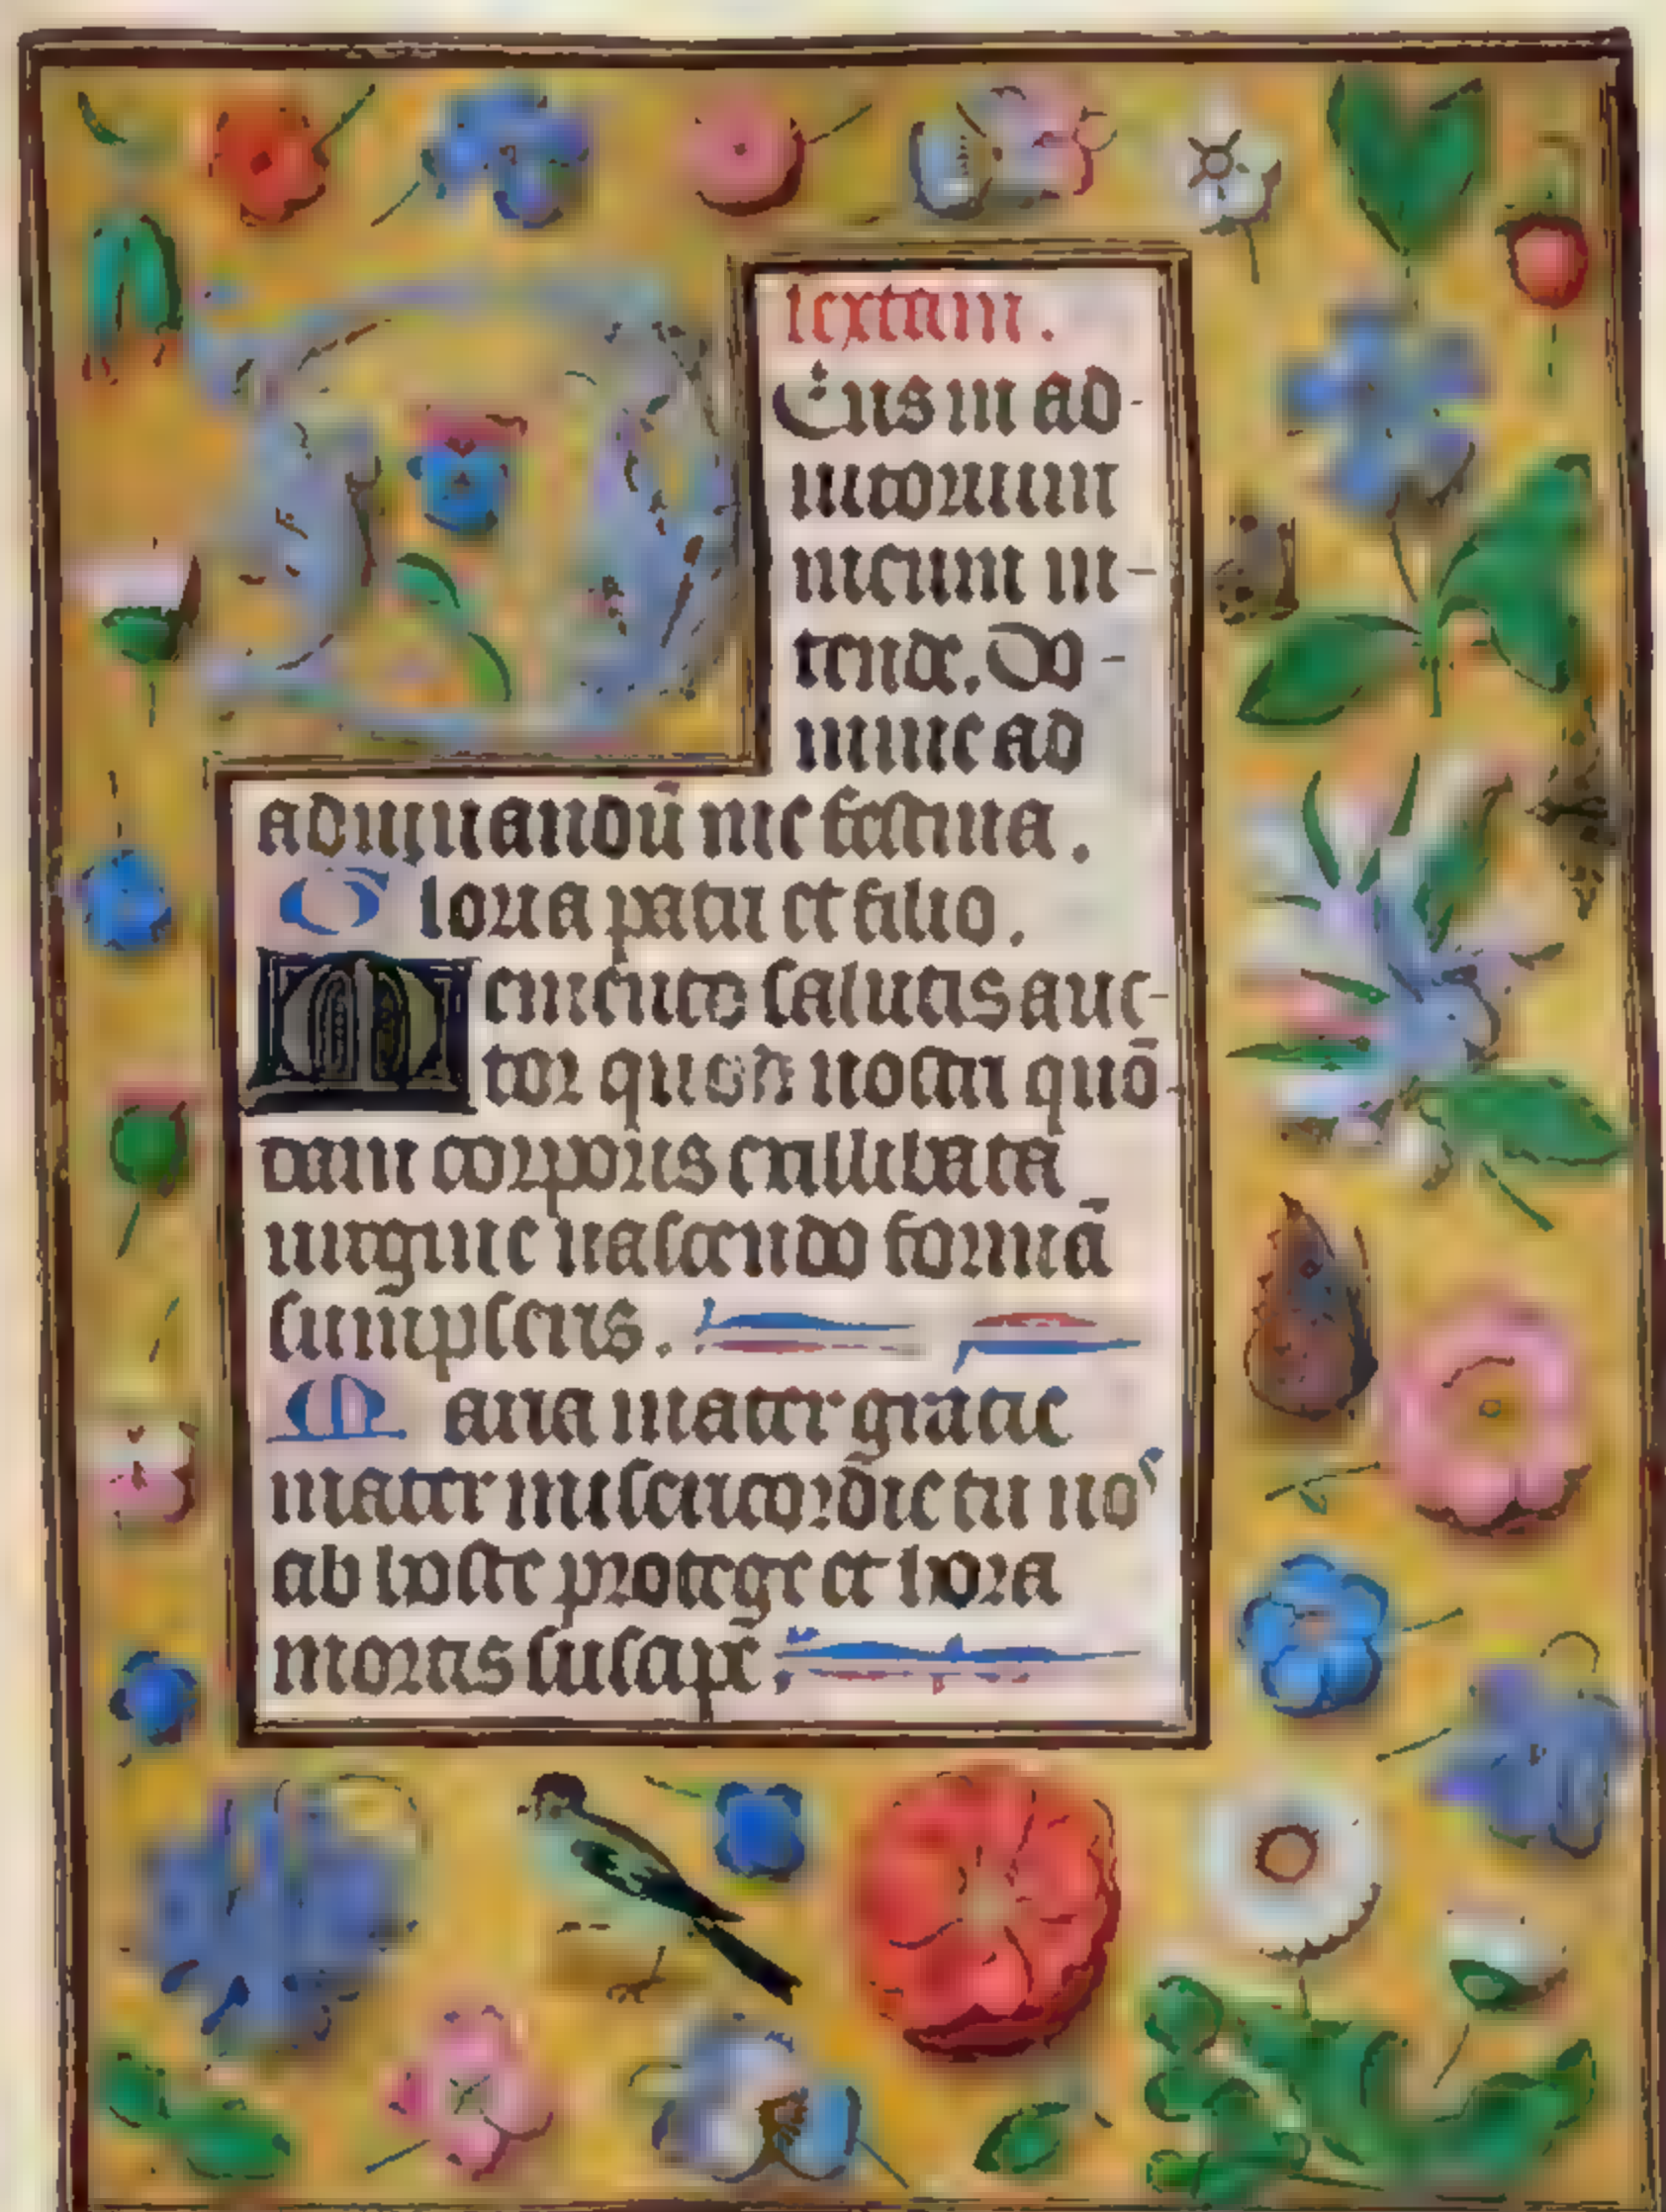 sextam.
Deus in ad-
iutorium
meum in-
tende. Do-
mine ad
adiuuandū me festina.
Gloria patri et filio.
Memento salutis auc-
tor quod nostri quō-
dam corporis ex illibata
uirgine nascendo formā
sumpseris.
Maria mater gratie
mater misericordie tu nos
ab hoste protege et hora
mortis suscipe.